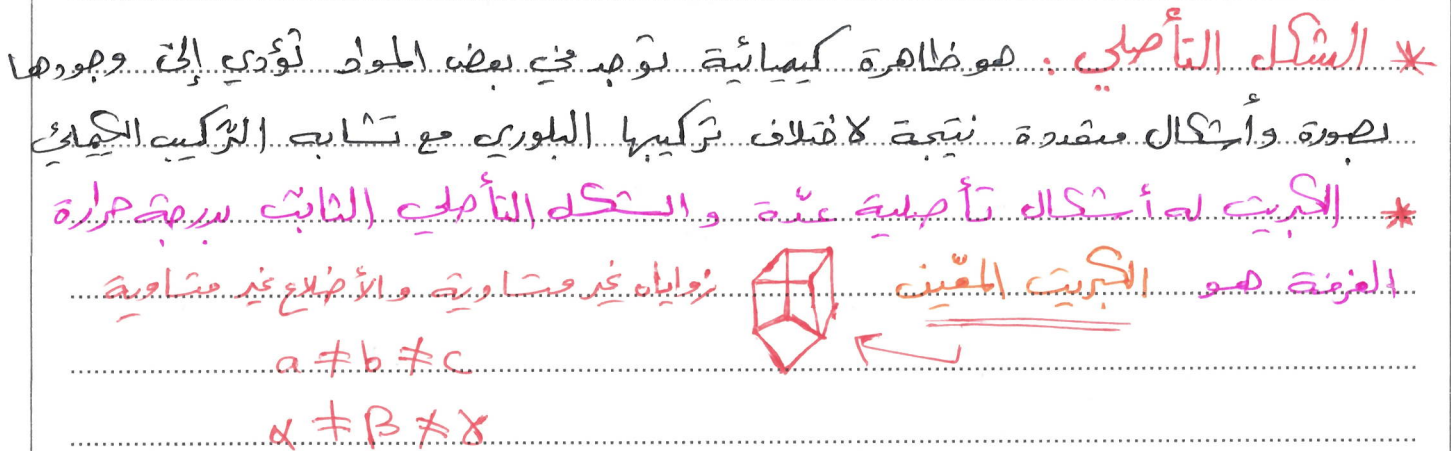 * الشكل التأصلي : هو ظاهرة كيميائية توجد في بعض المواد تؤدي إلى وجودها
بصورة وأشكال متعددة نتيجة لاختلاف تركيبها البلوري مع تشابه التركيب الكيميائي
* الكبريت له أشكال تأصلية عدّة والشكل التأصلي الثابت بدرجة حرارة
الغرفة هو الكبريت المعّين زواياه غير متساوية والأضلاع غير متساوية
a ≠ b ≠ c
α ≠ β ≠ γ